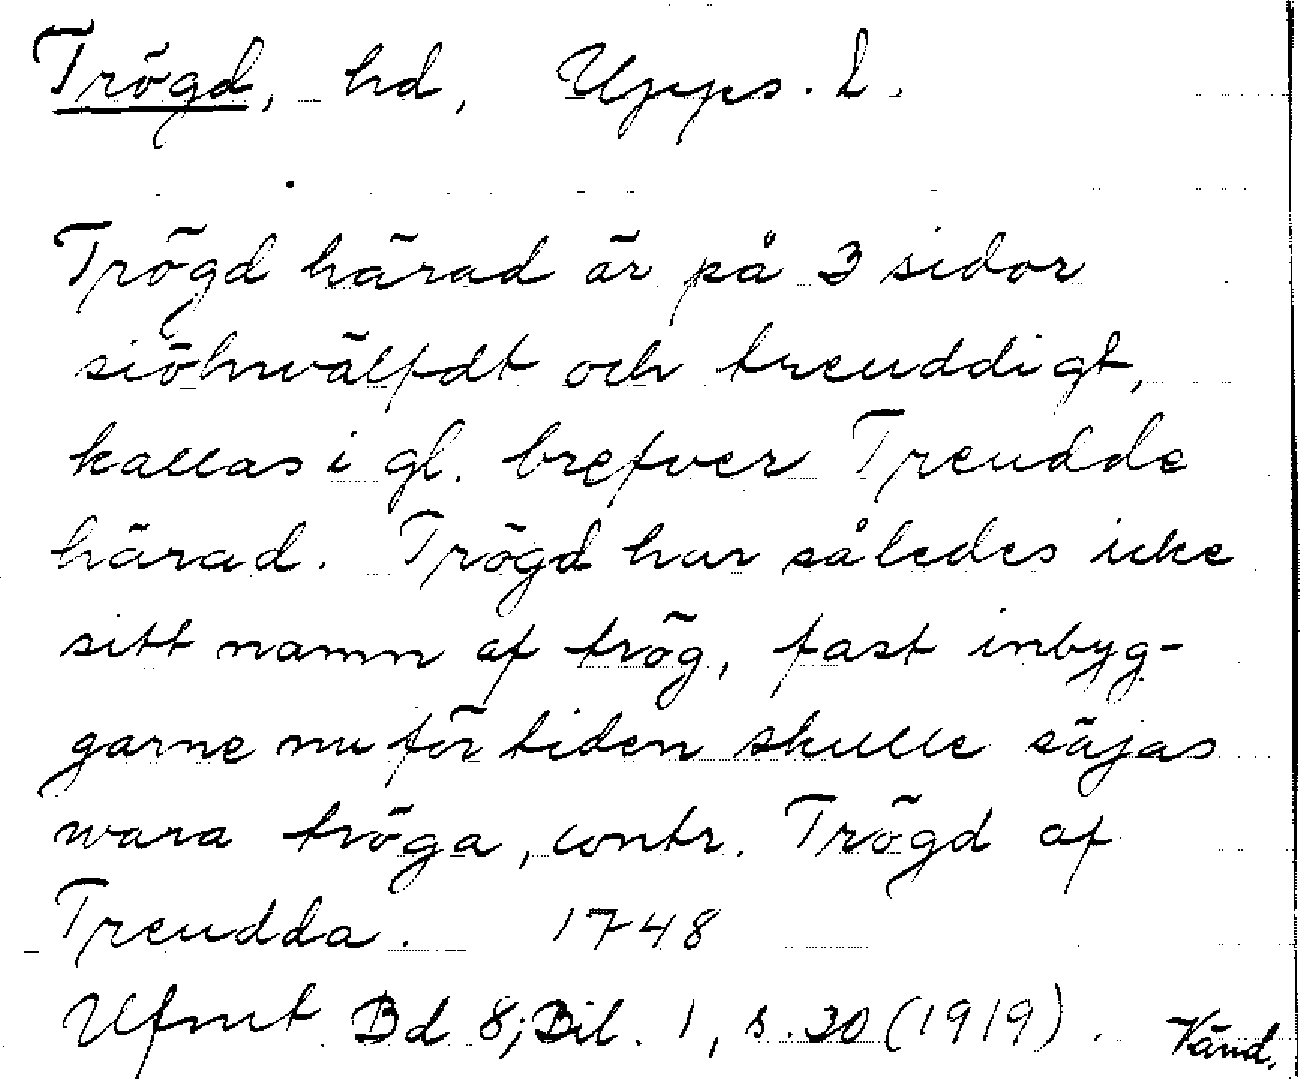 Trögd, hd, Upps. L.
Trögd härad är på 3 sidor
siöhwälfdt och treuddigt,
kallas i gl. brefver Treudde
härad. Trögd har således icke
sitt namn af trög, fast inbyg-
garne nu för tiden skulle säjas
wara tröga, contr. Trögd af
Treudda. 1748
Ufmt Bd 8; Bil. 1, s. 30 (1919).
Vänd.